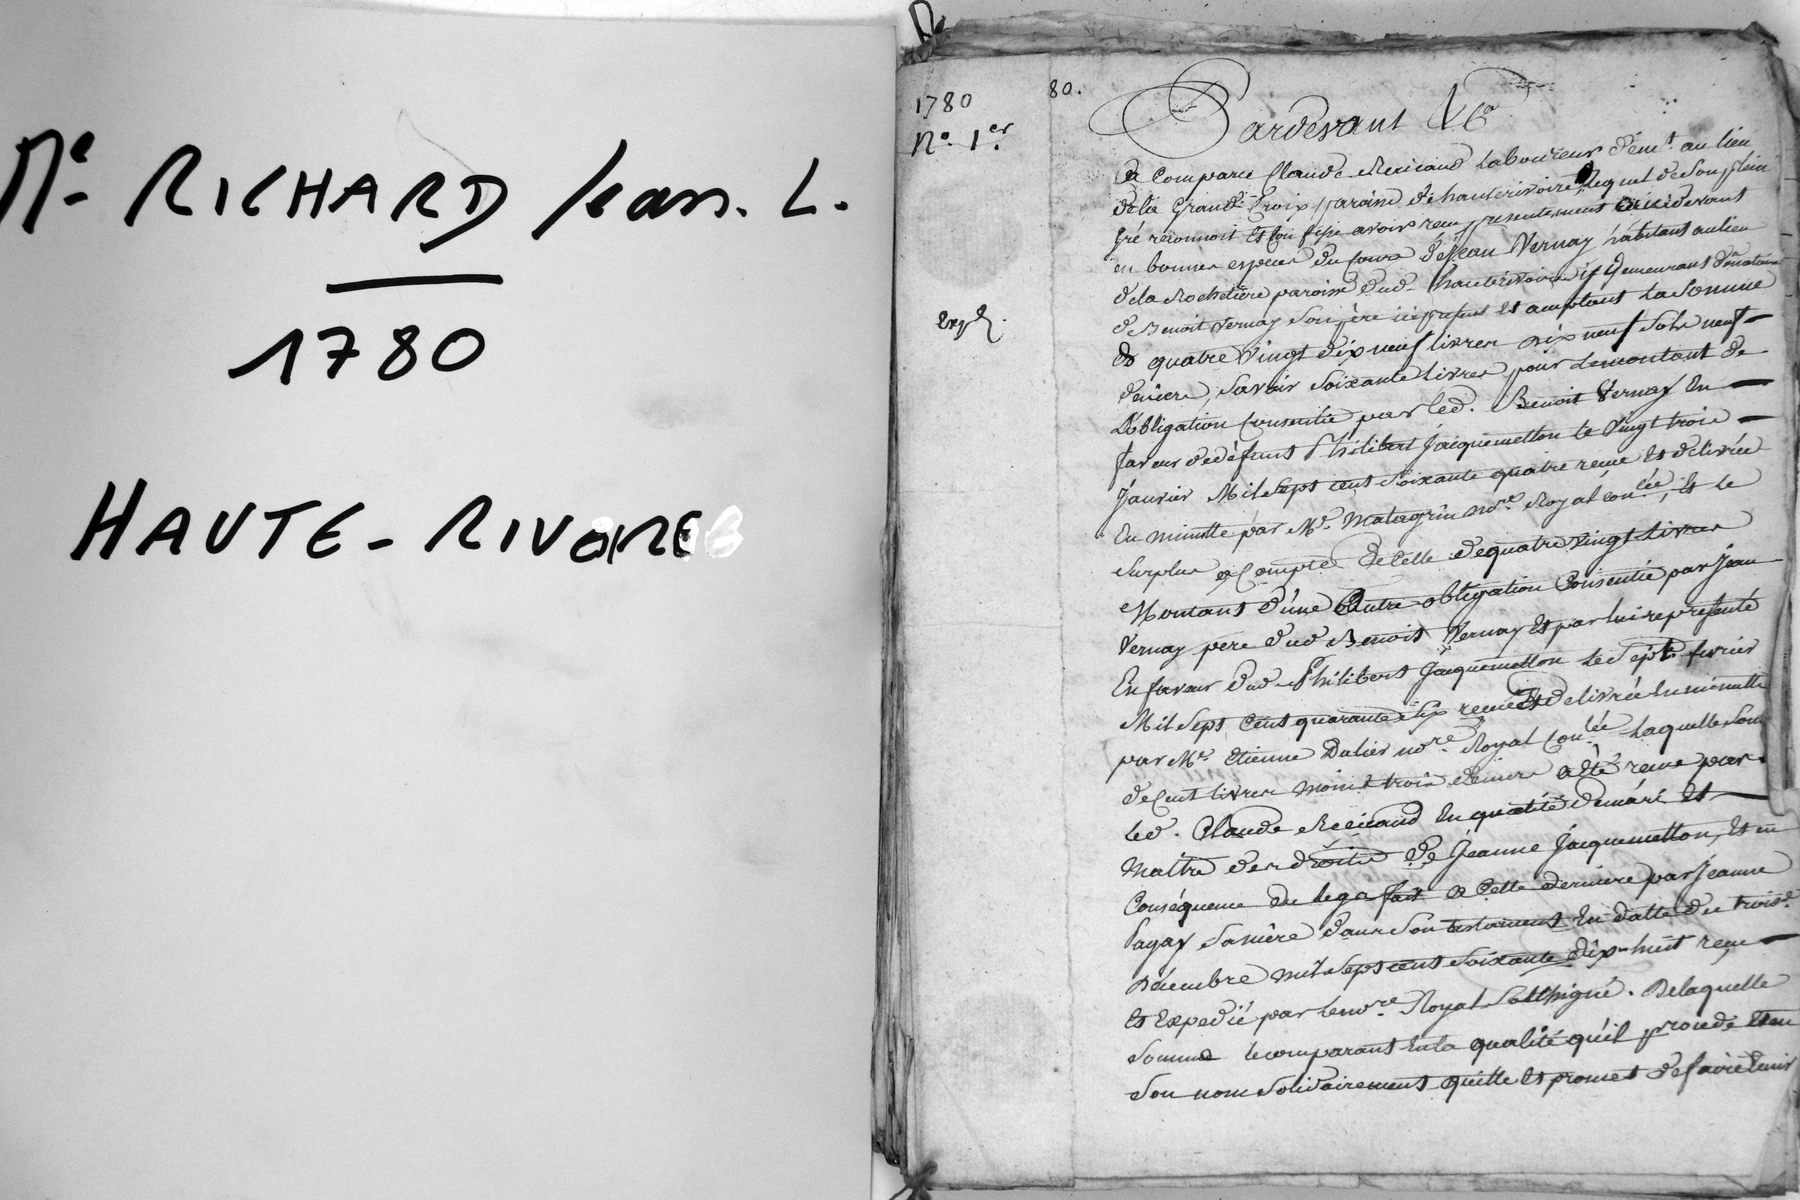 Me RICHARD Jean. L.
1780
HAUTE-RIVOIRE
1780
No. 1er.
80.
Pardevant &ca
a Comparu Claude Laboureur demt. au lieu
de la Grande Croix paroisse de hauterivoire, Lequel de Son plein
gré reconnoit et Confesse avoir reçu presentement cy devant
en bonnes espèces du Cours de Jean Vernay habitant au lieu
de la Rochetière paroisse dud. hauterivoire y demeurant Donataire
de Benoit Vernay Son père icy présent et acceptant La Somme
de quatre Vingt dix neuf livres dix neuf Sols neuf
deniers, Savoir Soixante Livres pour Lemontant de
L'obligation Consentie par led. Benoit Vernay En
faveur de défunt Philibert Jacquemetton le Vingt trois
Janvier Mil Sept cent Soixante quatre reçue et délivrée
En minutte par Me. Matagrin nore. Royal , Et Le
Surplus a Compte de Celle de quatre Vingt Livres
Montant d'une Autre obligation Consentie par Jean
Vernay père dud Benoit Vernay Et par lui représenté
En faveur dud. Philibert Jacquemetton le Sept fevrier
Mil Sept Cent quarante Six reçue Et délivrée En minutte
par Me Etienne Dalier nore. Royal Laquelle Som
de Cent livres moins trois deniers a été reçue par
led. Claude En qualité de mari Et
Maitre des droits de Jeanne Jacquemetton, Et en
Conséquence du legs fait a Cette derniere par Jeanne
Sa mère dans Son testament En datte du troise.
Décembre mil Sept cent Soixante dix-huit reçu
Et Expédié par le nore. Royal Soussigné. De laquelle
Somme le comparant En la qualité qu'il procede Et en
Son nom Solidairement quitte Et promet de faire tenir